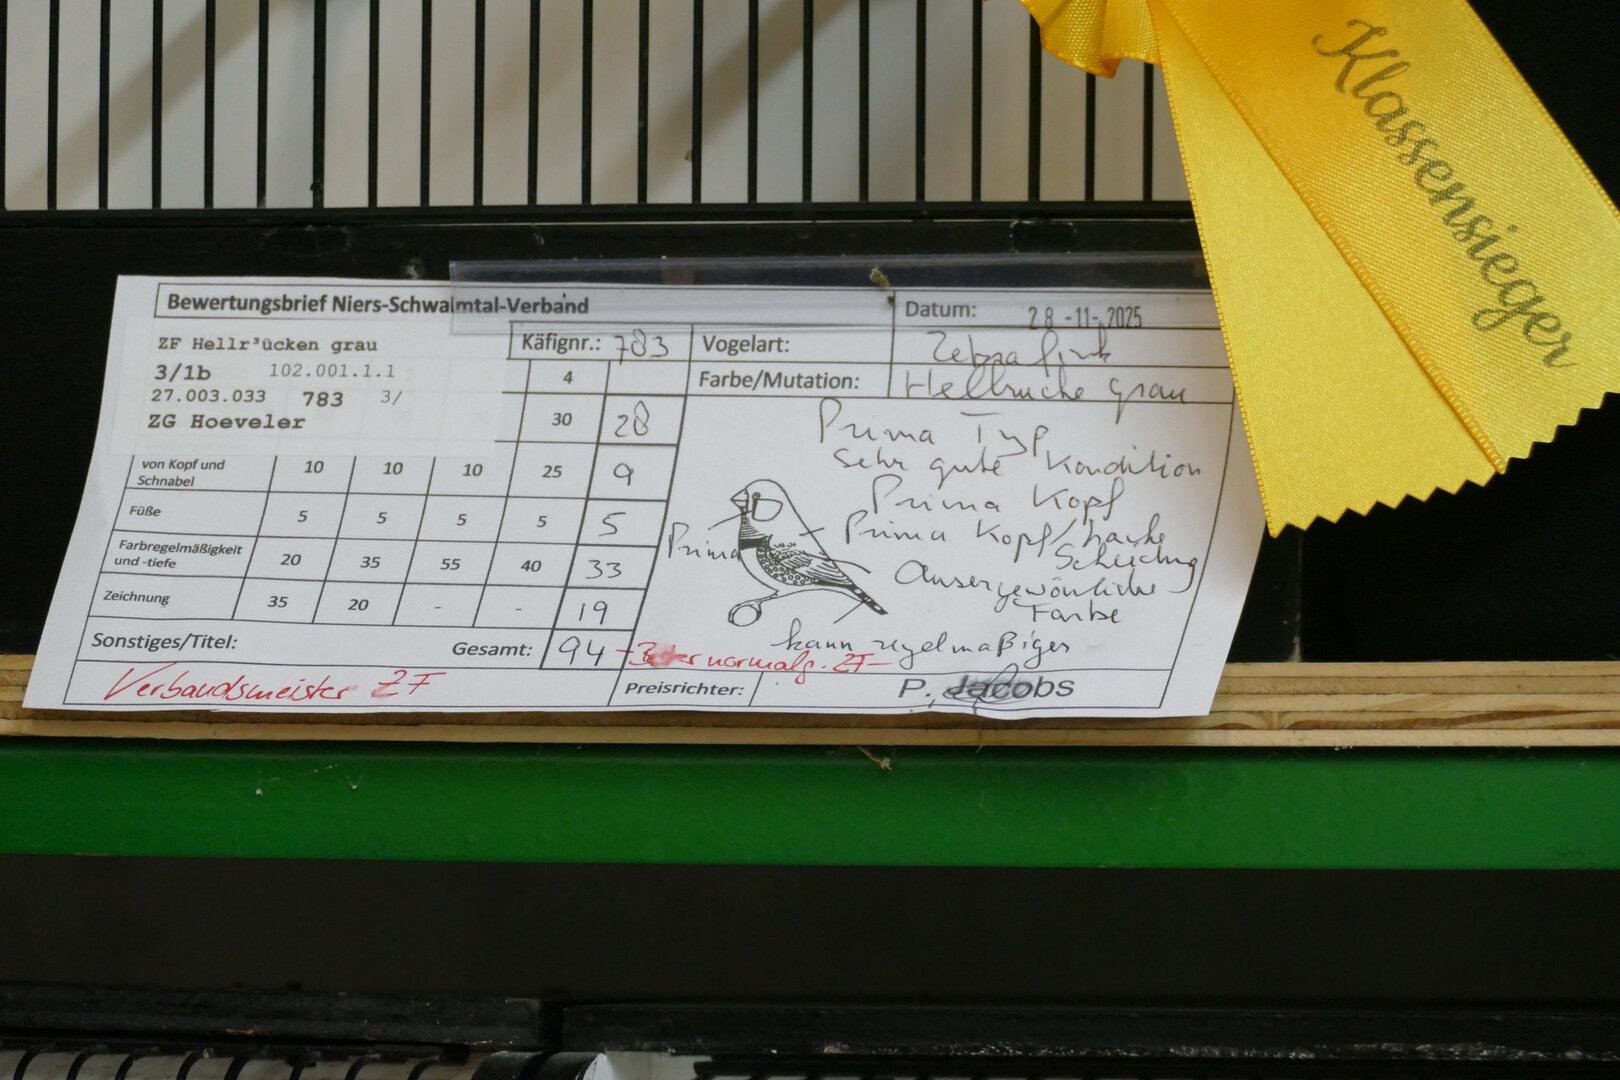 Klassensieger
Bewertungsbrief Niers-Schwalmtal-Verband
Datum: 28-11-2025
ZF Hellr³ücken grau
3/1b 102.001.1.1
27.003.033 783 3/
ZG Hoeveler
Käfignr.: 783
Vogelart: Zebrafink
Farbe/Mutation: Hellrücke grau
4
30 28
von Kopf und Schnabel 10 10 10 25 9
Füße 5 5 5 5 5
Farbregelmäßigkeit und -tiefe 20 35 55 40 33
Zeichnung 35 20 - - 19
Sonstiges/Titel: Gesamt: 94
Prima Typ
Sehr gute Kondition
Prima Kopf
Prima Kopf/
Prima
Farbe
kann regelmäßiger
normalg. ZF
Verbandsmeister ZF
Preisrichter: P. Jacobs